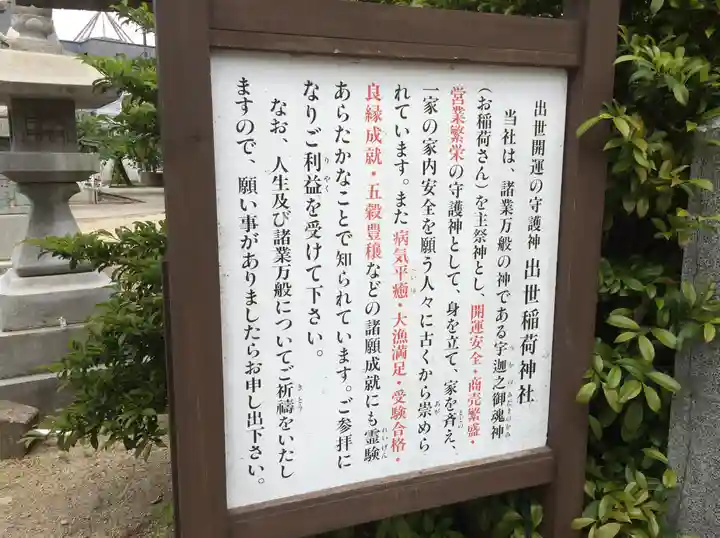 出世開運の守護神 出世稲荷神社
当社は、諸業万般の神である宇迦之御魂神
（お稲荷さん）を主祭神とし、開運安全・商売繁盛・
営業繁栄の守護神として、身を立て、家を斉え、
一家の家内安全を願う人々に古くから崇めら
れています。また病気平癒・大漁満足・受験合格・
良縁成就・五穀豊穣などの諸願成就にも霊験
あらたかなことで知られています。ご参拝に
なりご利益を受けて下さい。
なお、人生及び諸業万般についてご祈禱をいたし
ますので、願い事がありましたらお申し出下さい。